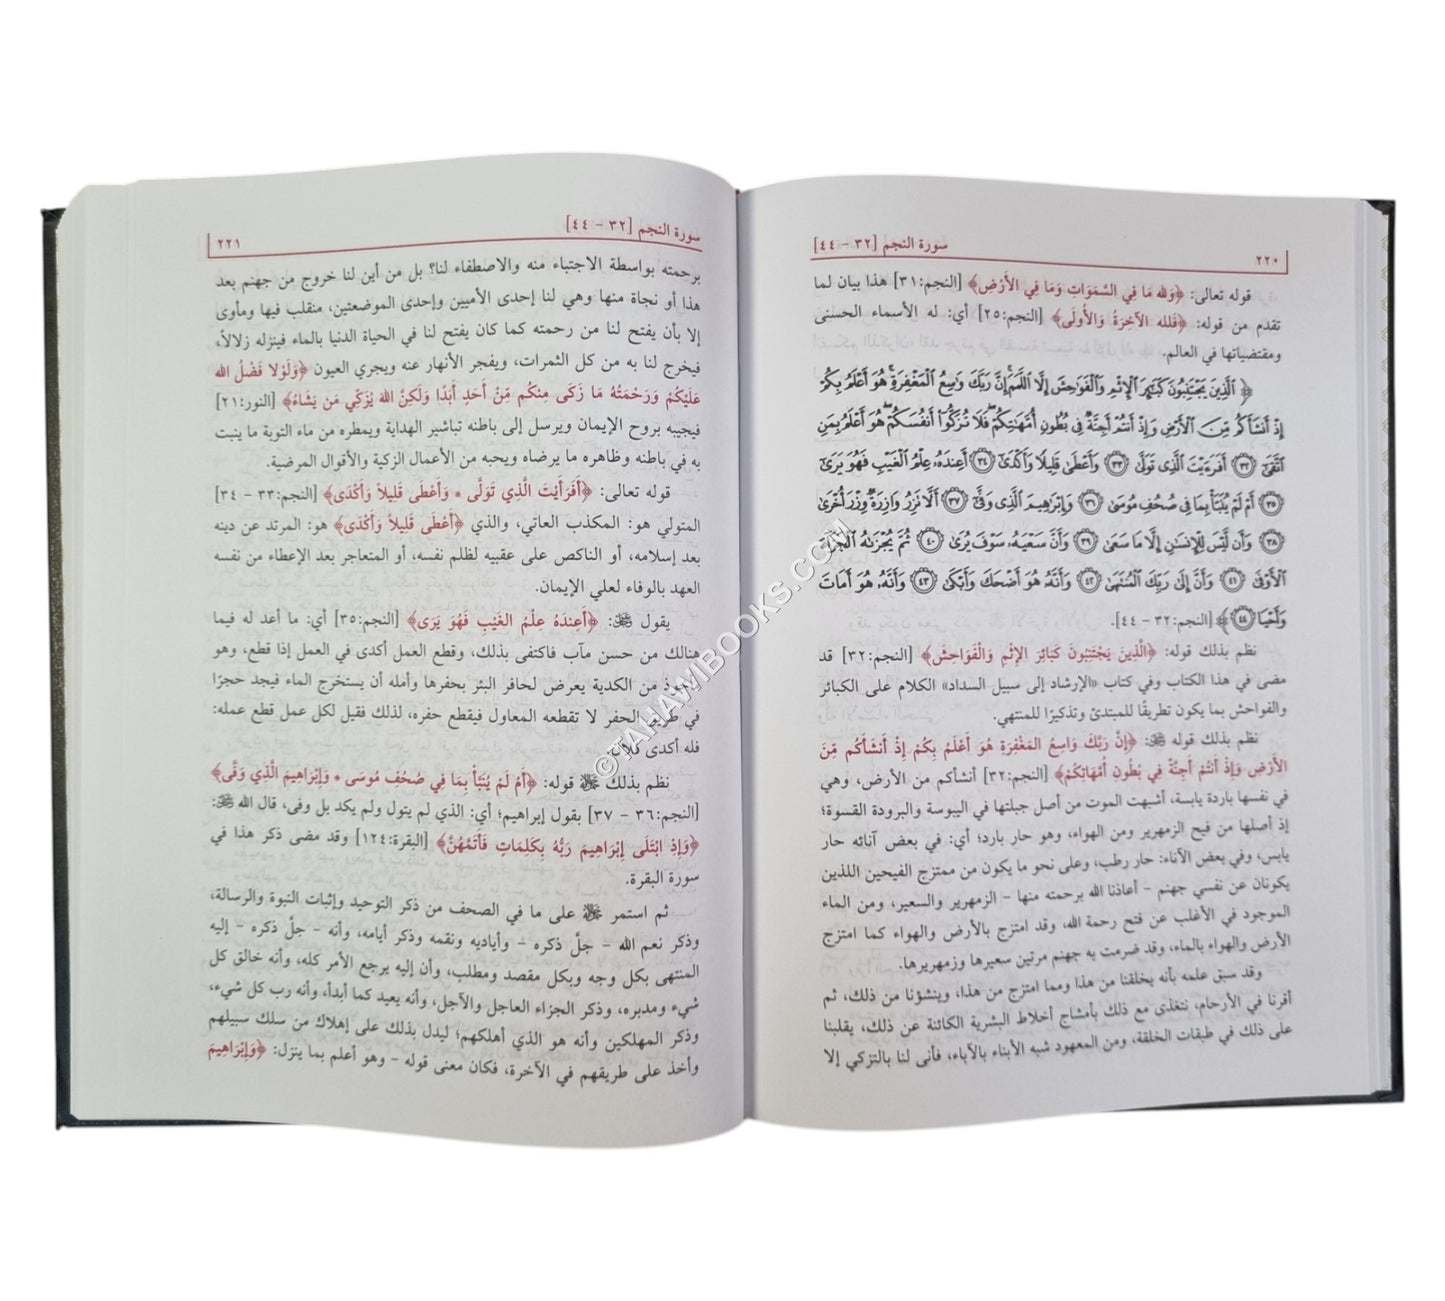 ٢٢٠
سورة النجم [٣٢ – ٤٤]
قوله تعالى: ﴿وَلله مَا فِي السَّمَوَاتِ وَمَا فِي الأَرْضِ﴾ [النجم:٣١] هذا بيان لما
تقدم من قوله: ﴿فَلله الآخِرَةُ وَالأُولَى﴾ [النجم:٢٥] أي: له الأسماء الحسنى
ومقتضياتها في العالم.
﴿ٱلَّذِينَ يَجْتَنِبُونَ كَبَٰٓئِرَ ٱلْإِثْمِ وَٱلْفَوَٰحِشَ إِلَّا ٱللَّمَمَ إِنَّ رَبَّكَ وَٰسِعُ ٱلْمَغْفِرَةِ هُوَ أَعْلَمُ بِكُمْ
إِذْ أَنشَأَكُم مِّنَ ٱلْأَرْضِ وَإِذْ أَنتُمْ أَجِنَّةٌ فِى بُطُونِ أُمَّهَٰتِكُمْ فَلَا تُزَكُّوٓا۟ أَنفُسَكُمْ هُوَ أَعْلَمُ بِمَنِ
ٱتَّقَىٰٓ ٣٢ أَفَرَءَيْتَ ٱلَّذِى تَوَلَّىٰ ٣٣ وَأَعْطَىٰ قَلِيلًا وَأَكْدَىٰٓ ٣٤ أَعِندَهُۥ عِلْمُ ٱلْغَيْبِ فَهُوَ يَرَىٰٓ
٣٥ أَمْ لَمْ يُنَبَّأْ بِمَا فِى صُحُفِ مُوسَىٰ ٣٦ وَإِبْرَٰهِيمَ ٱلَّذِى وَفَّىٰٓ ٣٧ أَلَّا تَزِرُ وَازِرَةٌ وِزْرَ أُخْرَىٰ
٣٨ وَأَن لَّيْسَ لِلْإِنسَٰنِ إِلَّا مَا سَعَىٰ ٣٩ وَأَنَّ سَعْيَهُۥ سَوْفَ يُرَىٰ ٤٠ ثُمَّ يُجْزَىٰهُ ٱلْجَزَآءَ
ٱلْأَوْفَىٰ ٤١ وَأَنَّ إِلَىٰ رَبِّكَ ٱلْمُنتَهَىٰ ٤٢ وَأَنَّهُۥ هُوَ أَضْحَكَ وَأَبْكَىٰ ٤٣ وَأَنَّهُۥ هُوَ أَمَاتَ
وَأَحْيَا ٤٤﴾ [النجم:٣٢ – ٤٤].
نظم بذلك قوله: ﴿الَّذِينَ يَجْتَنِبُونَ كَبَائِرَ الإِثْمِ وَالْفَوَاحِشَ﴾ [النجم:٣٢] قد
مضى في هذا الكتاب وفي كتاب «الإرشاد إلى سبيل السداد» الكلام على الكبائر
والفواحش بما يكون تطريقًا للمبتدئ وتذكيرًا للمنتهي.
نظم بذلك قوله ﷻ: ﴿إِنَّ رَبَّكَ وَاسِعُ المَغْفِرَةِ هُوَ أَعْلَمُ بِكُمْ إِذْ أَنشَأَكُم مِّنَ
الأَرْضِ وَإِذْ أَنتُمْ أَجِنَّةٌ فِي بُطُونِ أُمَّهَاتِكُمْ﴾ [النجم:٣٢] أنشأكم من الأرض، وهي
في نفسها باردة يابسة، أشبهت الموت من أصل جبلتها في اليبوسة والبرودة القسوة؛
إذ أصلها من فيح الزمهرير ومن الهواء، وهو حار بارد؛ أي: في بعض آنائه حار
يابس، وفي بعض الآناء: حار رطب، وعلى نحو ما يكون من ممتزج الفيحين اللذين
يكونان عن نفسي جهنم – أعاذنا الله برحمته منها – الزمهرير والسعير، ومن الماء
الموجود في الأغلب عن فتح رحمة الله، وقد امتزج بالأرض والهواء كما امتزج
الأرض والهواء بالماء، وقد ضرمت به جهنم مرتين سعيرها وزمهريرها.
وقد سبق علمه بأنه يخلقنا من هذا ومما امتزج من هذا، وينشؤنا من ذلك، ثم
أقرنا في الأرحام، نتغذى مع ذلك بأمشاج أخلاط البشرية الكائنة عن ذلك، يقلبنا
على ذلك في طبقات الخلقة، ومن المعهود شبه الأبناء بالآباء، فأنى لنا بالتزكي إلا
سورة النجم [٣٢ – ٤٤]
٢٢١
برحمته بواسطة الاجتباء منه والاصطفاء لنا؟ بل من أين لنا خروج من جهنم بعد
هذا أو نجاة منها وهي لنا إحدى الأميين وإحدى الموضعتين، منقلب فيها ومأوى
إلا بأن يفتح لنا من رحمته كما كان يفتح لنا في الحياة الدنيا بالماء فينزله زلالاً،
فيخرج لنا به من كل الثمرات، ويفجر الأنهار عنه ويجري العيون ﴿وَلَوْلا فَضْلُ الله
عَلَيْكُمْ وَرَحْمَتُهُ مَا زَكَى مِنكُم مِّنْ أَحَدٍ أَبَدًا وَلَكِنَّ اللهَ يُزَكِّي مَن يَشَاءُ﴾ [النور:٢١]
فيجيبه بروح الإيمان ويرسل إلى باطنه تباشير الهداية ويمطره من ماء التوبة ما ينبت
به في باطنه وظاهره ما يرضاه ويحبه من الأعمال الزكية والأقوال المرضية.
قوله تعالى: ﴿أَفَرَأَيْتَ الَّذِي تَوَلَّى * وَأَعْطَى قَلِيلاً وَأَكْدَى﴾ [النجم:٣٣ – ٣٤]
المتولي هو: المكذب العاتي، والذي ﴿أَعْطَى قَلِيلاً وَأَكْدَى﴾ هو: المرتد عن دينه
بعد إسلامه، أو الناكص على عقبيه لظلم نفسه، أو المتعاجر بعد الإعطاء من نفسه
العهد بالوفاء لعلي الإيمان.
يقول ﷻ: ﴿أَعِندَهُ عِلْمُ الغَيْبِ فَهُوَ يَرَى﴾ [النجم:٣٥] أي: ما أعد له فيما
هنالك من حسن مآب فاكتفى بذلك، وقطع العمل أكدى في العمل إذا قطع، وهو
من الكدية يعرض لحافر البئر بحفرها وأمله أن يستخرج الماء فيجد حجرًا
في طريق الحفر لا تقطعه المعاول فيقطع حفره، لذلك فقيل لكل عمل قطع عمله:
فله أكدى فلان.
نظم بذلك ﷻ قوله: ﴿أَمْ لَمْ يُنَبَّأْ بِمَا فِي صُحُفِ مُوسَى * وَإِبْرَاهِيمَ الَّذِي وَفَّى﴾
[النجم:٣٦ – ٣٧] بقول إبراهيم؛ أي: الذي لم يتول ولم يكد بل وفى، قال الله ﷻ:
﴿وَإِذِ ابْتَلَى إِبْرَاهِيمَ رَبُّهُ بِكَلِمَاتٍ فَأَتَمَّهُنَّ﴾ [البقرة:١٢٤] وقد مضى ذكر هذا في
سورة البقرة.
ثم استمر ﷻ على ما في الصحف من ذكر التوحيد وإثبات النبوة والرسالة،
وذكر نعم الله – جلَّ ذكره – وأياديه ونقمه وذكر أيامه، وأنه – جلَّ ذكره – إليه
المنتهى بكل وجه وبكل مقصد ومطلب، وأن إليه يرجع الأمر كله، وأنه خالق كل
شيء ومدبره، وذكر الجزاء العاجل والآجل، وأنه يعيد كما أبدأ، وأنه رب كل شيء،
وذكر المهلكين وأنه هو الذي أهلكهم؛ ليدل بذلك على إهلاك من سلك سبيلهم
وأخذ على طريقهم في الآخرة، فكان معنى قوله – وهو أعلم بما ينزل: ﴿وَإِبْرَاهِيمَ
©TAHAWIBOOKS.COM